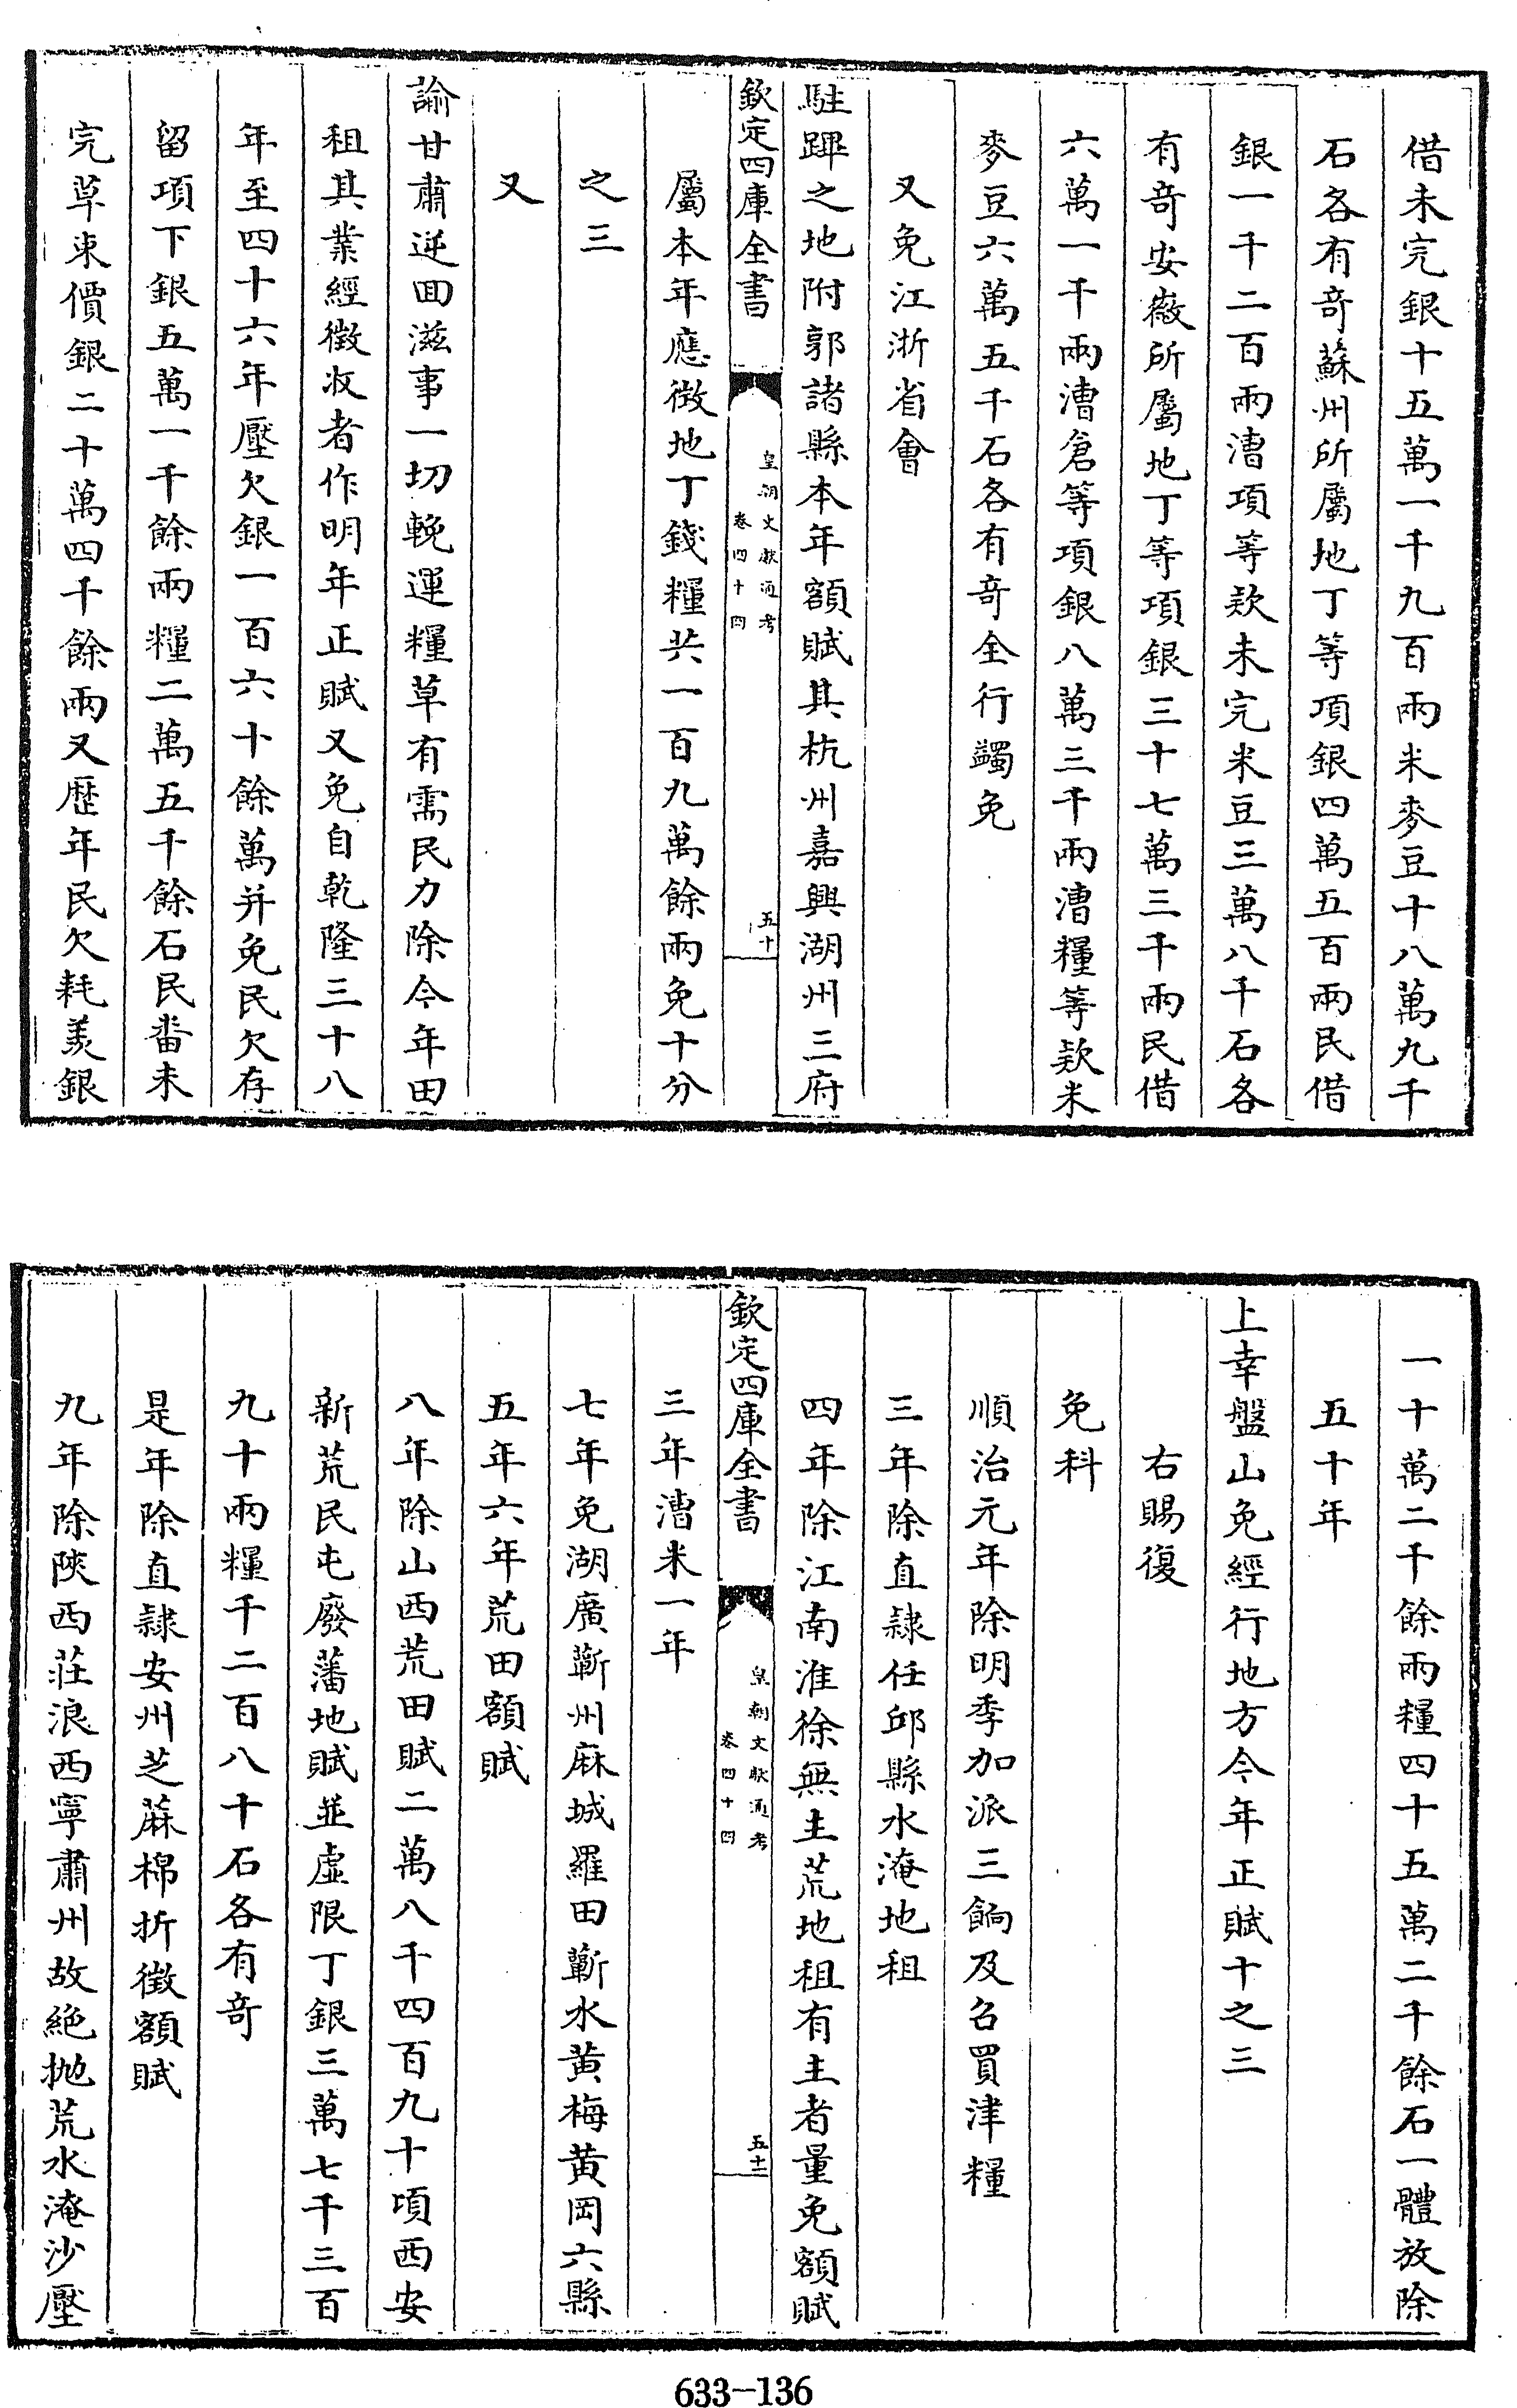 借未完銀十五萬一千九百兩米麥豆十八萬九千
石各有竒蘇州所屬地丁等項銀四萬五百兩民借
銀一千二百兩漕項等欵未完米豆三萬八千石各
有竒安廠所屬地丁等項銀三十七萬三千兩民借
六萬一千兩漕倉等項銀八萬三千兩漕糧等欵米
麥豆六萬五千石各有竒全行蠲免
又免江浙省會
駐蹕之地附郭諸縣本年額賦其杭州嘉興湖州三府
欽定四庫全書
皇朝文獻通考
卷四十四
五十
屬本年應徴地丁錢糧共一百九萬餘兩免十分
之三
又
諭甘肅逆回滋事一切輓運糧草有需民力除今年田
租其業經徴收者作明年正賦又免自乾隆三十八
年至四十六年壓欠銀一百六十餘萬并免民欠存
留項下銀五萬一千餘兩糧二萬五千餘石民畨未
完草束價銀二十萬四千餘兩又歷年民欠耗羨銀
一十萬二千餘兩糧四十五萬二千餘石一體放除
五十年
上幸盤山免經行地方今年正賦十之三
右賜復
免科
順治元年除明季加派三餉及召買津糧
三年除直隷任邱縣水淹地租
四年除江南淮徐無主荒地租有主者量免額賦
欽定四庫全書
皇朝文獻通考
卷四十四
五十一
三年漕米一年
七年免湖廣蘄州麻城羅田蘄水黄梅黄岡六縣
五年六年荒田額賦
八年除山西荒田賦二萬八千四百九十頃西安
新荒民屯廢藩地賦並虚限丁銀三萬七千三百
九十兩糧千二百八十石各有竒
是年除直隷安州芝蔴棉折徴額賦
九年除陜西莊浪西寧肅州故絶抛荒水淹沙壓
633-136